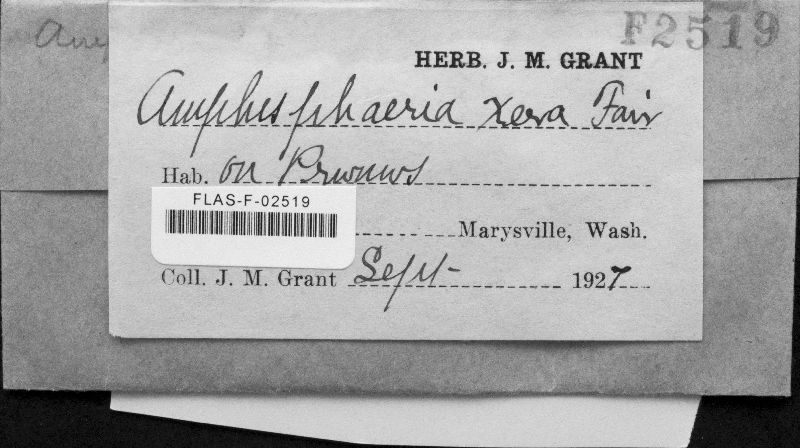 F2519
HERB. J. M. GRANT
Amphisphaeria xera Fair
Hab. on Prunus
FLAS-F-02519
Marysville, Wash.
Coll. J. M. Grant Sept 1927